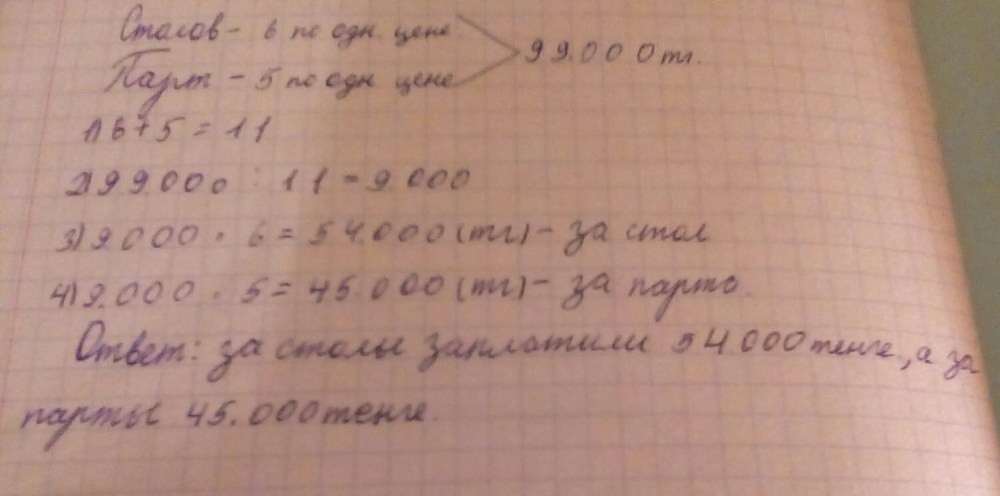 Столов - 6 по одн. цене
99.000тг.
Парт - 5 по одн цене
1) 6+5=11
2) 99000 : 11=9000
3) 9.000 · 6=54.000(тг)- за стол
4) 9.000 · 5=45.000(тг)- за парто.
Ответ: за столы заплотили 54.000тенге, а за
парты 45.000тенге.